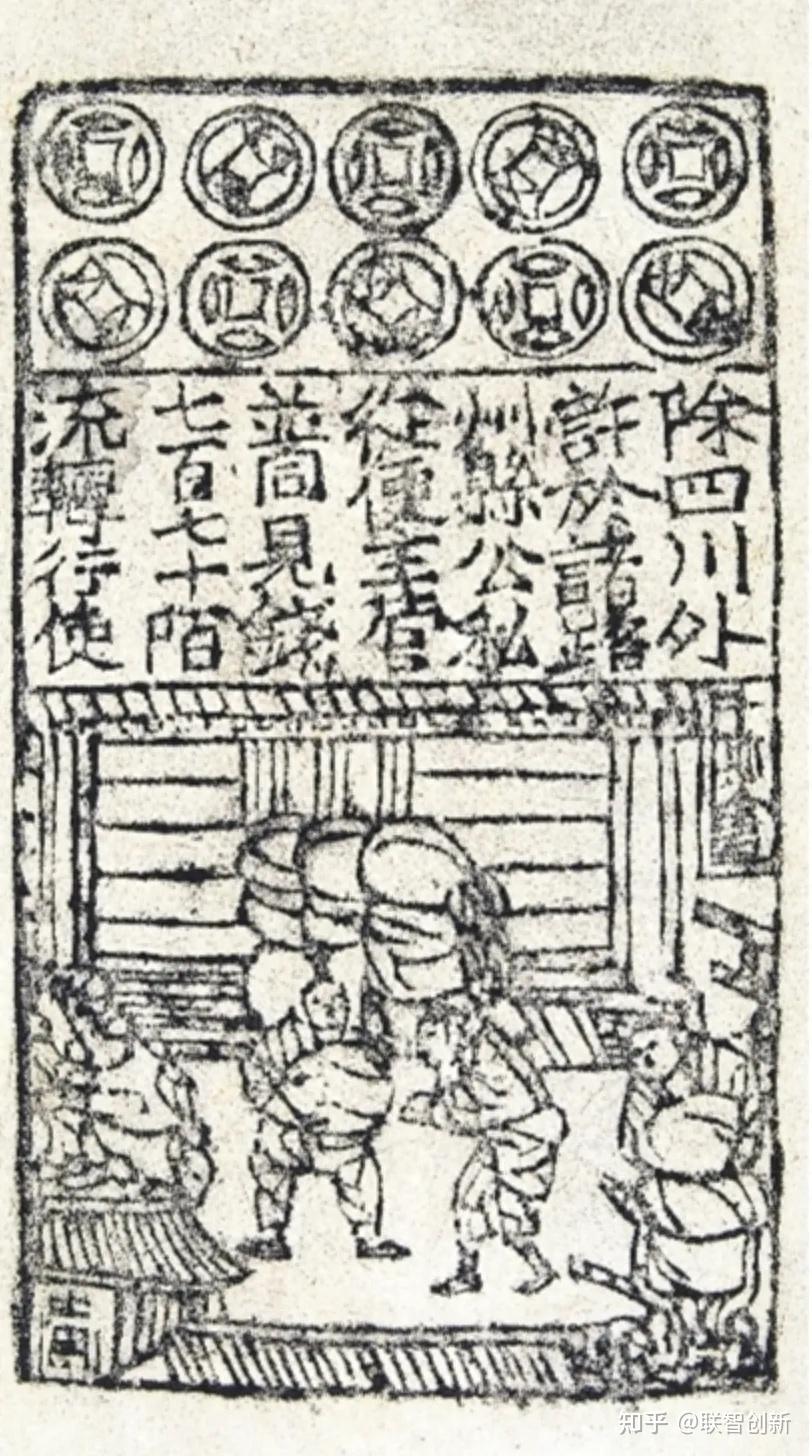 除四川外
許於諸路
州縣公私
從便主管
並同見錢
七百七十陌
流轉行使
知乎 @联智创新